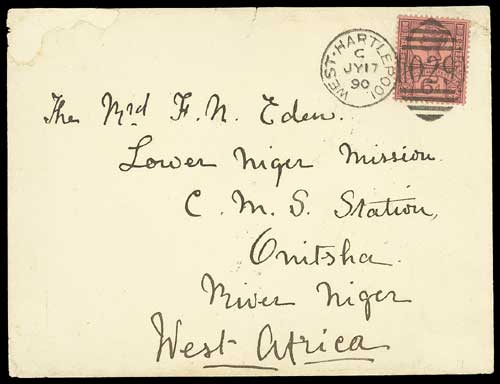 WEST-HARTLEPOOL
C
JY17
90
029
6D
The Revd F. N. Eden.
Lower Niger Mission.
C. M. S. Station,
Onitsha.
River Niger
West Africa